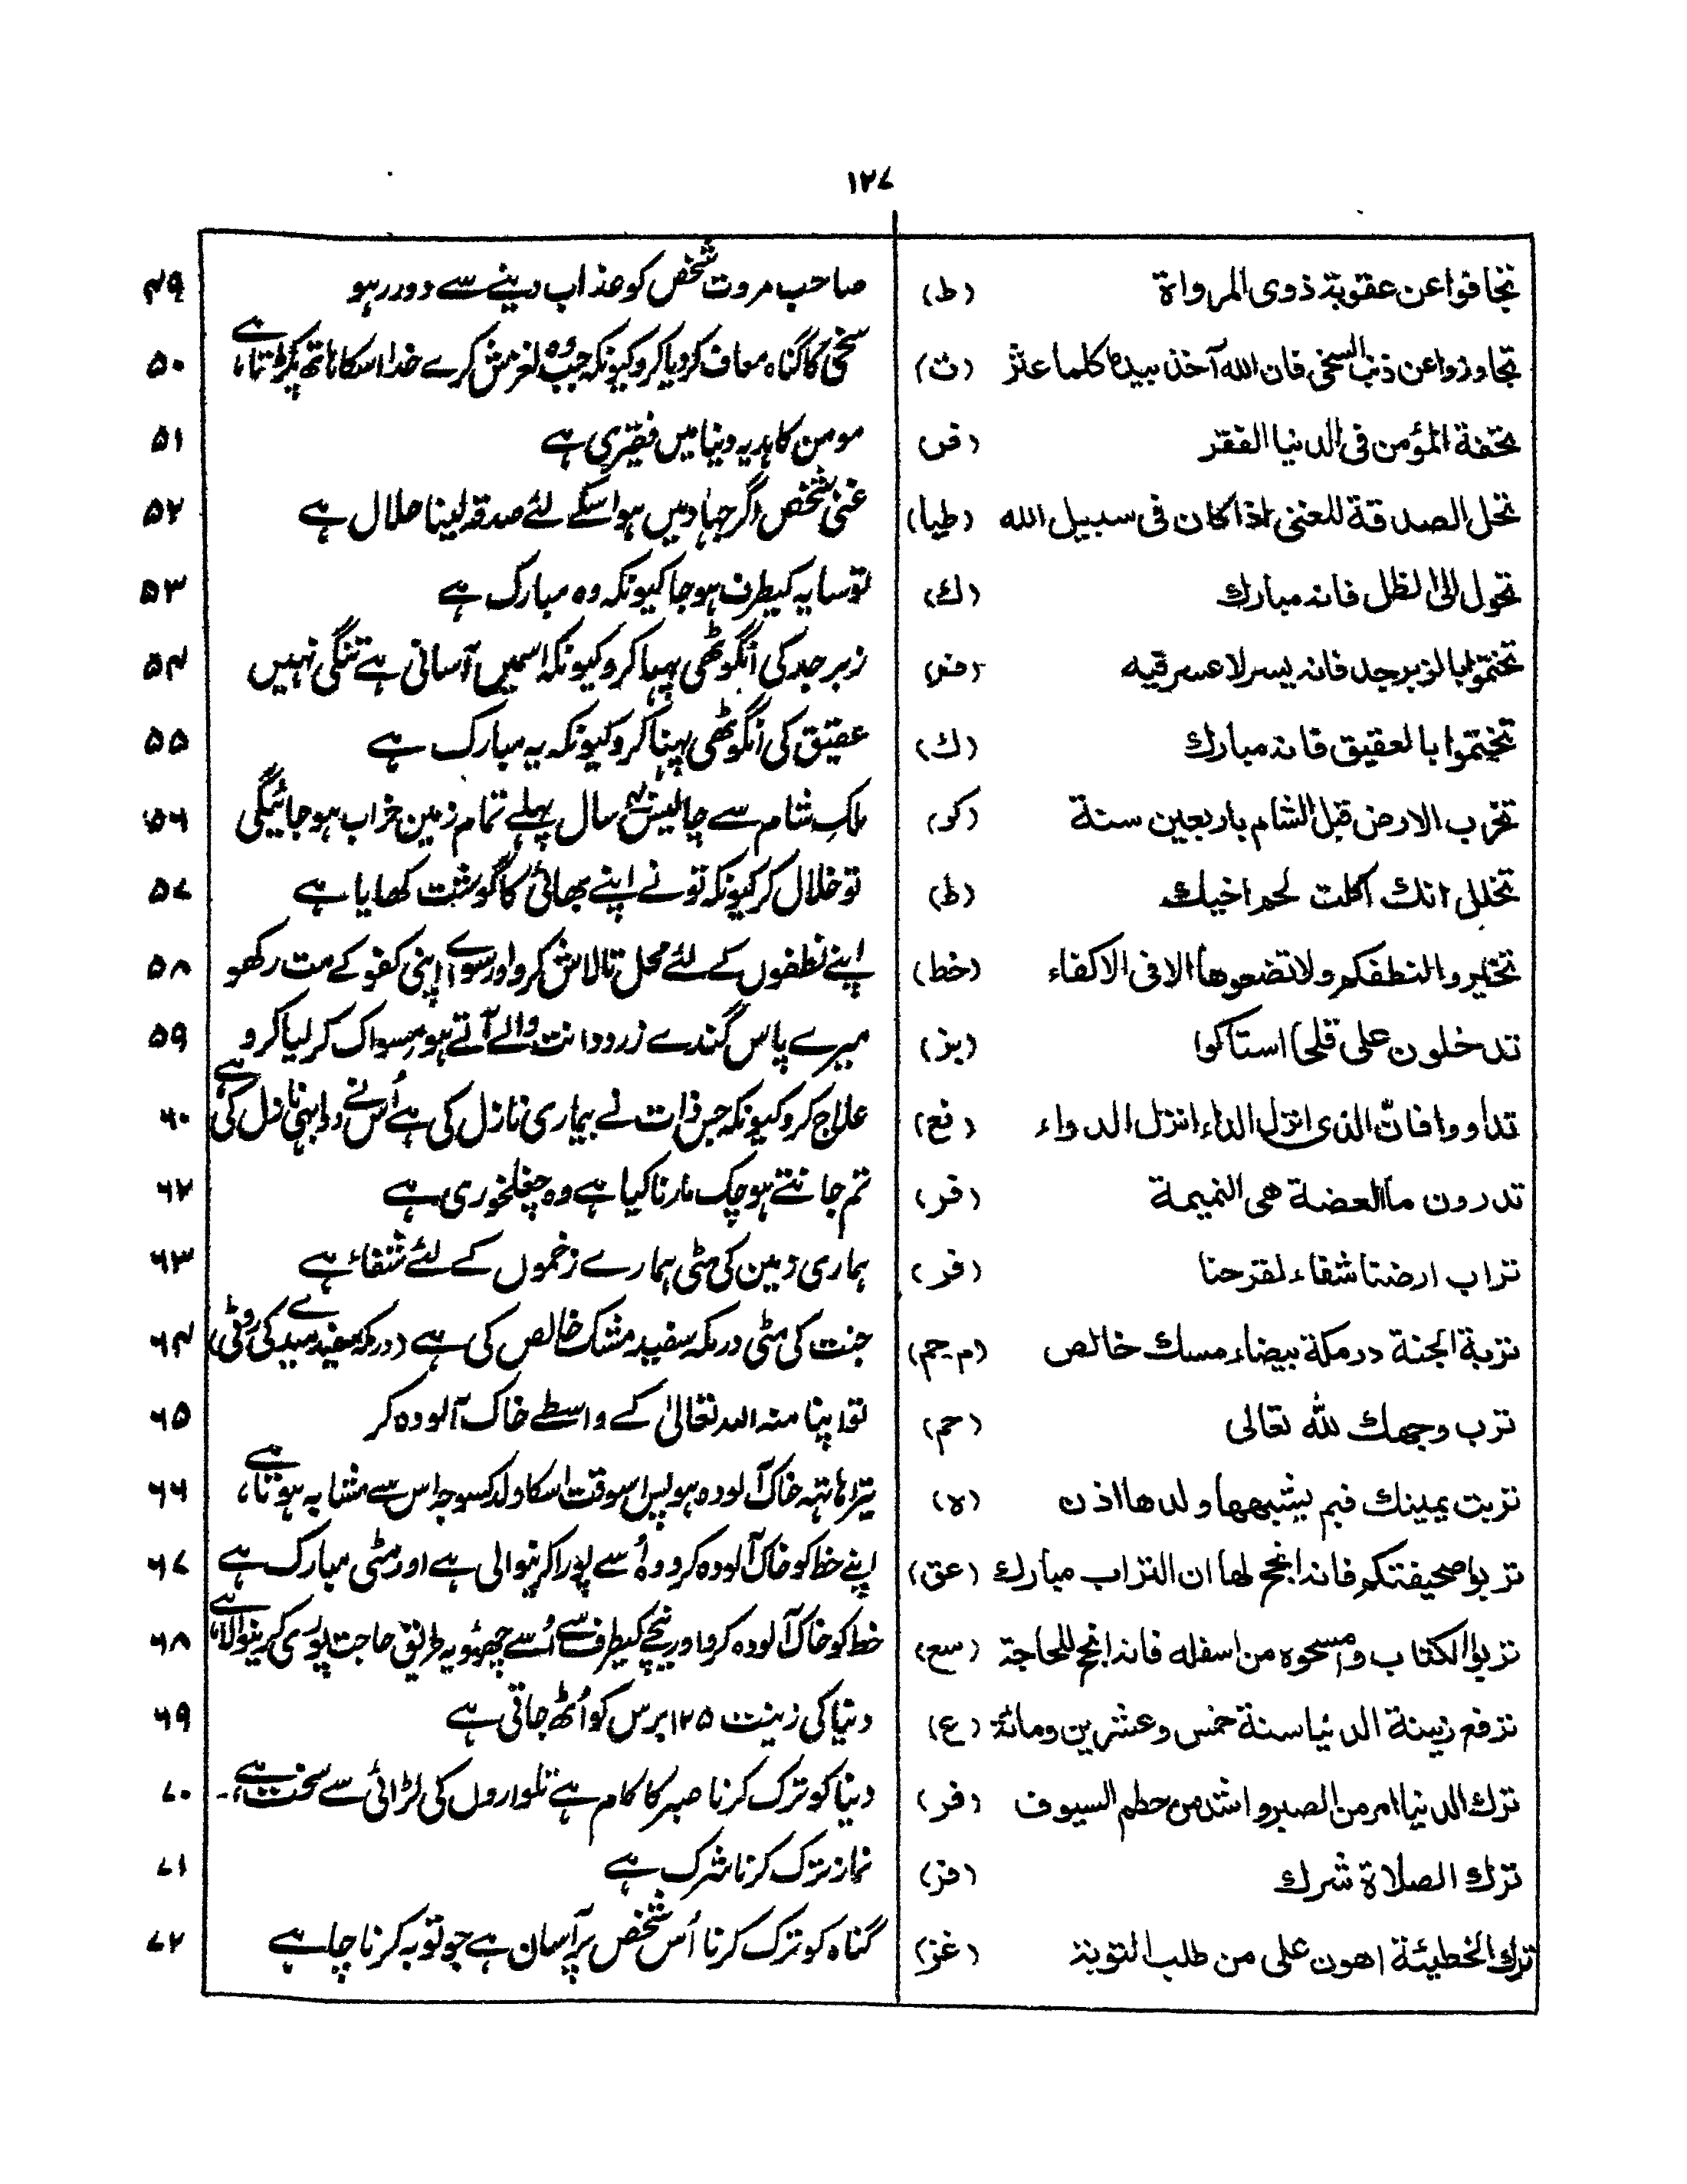 ۱۲۷
تجافوا عن عقوبة ذوی المرواة (ط) صاحب مروت شخص کو عذاب دینے سے دور رہو ۴۹
تجاوزوا عن ذنب السخی فان الله آخذ بیدہ کلما عثر (ث) سخی کا گناہ معاف کردیا کرو کیونکہ جب وہ لغزش کرے خدا اسکا ہاتھ پکڑتا ہے ۵۰
تحفة المؤمن فی الدنیا الفقر (فر) مومن کا ہدیہ دنیا میں فقیری ہے ۵۱
تحل الصدقة للغنی اذا کان فی سبیل الله (طیا) غنی شخص اگر جہاد میں ہو اسکے لئے صدقہ لینا حلال ہے ۵۲
تحول الی الظل فانه مبارك (ك) تو سایہ کیطرف ہوجا کیونکہ وہ مبارک ہے ۵۳
تختموا بالزبرجد فانه یسر لا عسر فیه (فر) زبرجد کی انگوٹھی پہنا کرو کیونکہ اسمیں آسانی ہے تنگی نہیں ۵۴
تختموا بالعقیق فانه مبارك (ك) عقیق کی انگوٹھی پہنا کرو کیونکہ یہ مبارک ہے ۵۵
تخرب الارض قبل الشام باربعین سنة (کر) ملک شام سے چالیس سال پہلے تمام زمین خراب ہوجائیگی ۵۶
تخللی انك اکلت لحم اخیك (ط) تو خلال کر کیونکہ تو نے اپنے بھائی کا گوشت کھایا ہے ۵۷
تخیروا لنطفکم ولا تضعوها الا فی الاکفاء (خط) اپنے نطفوں کے لئے محل تالاش کرو اور سوائے اپنی کفو کے مت رکھو ۵۸
تدخلون علی قلحا استاکوا (بز) میرے پاس گندے زرد دانت والے آتے ہو مسواک کرلیا کرو ۵۹
تداووا فانّ الذی انزل الداء انزل الدواء (نع) علاج کرو کیونکہ جس ذات نے بیماری نازل کی ہے اُس نے دوا بھی نازل کی ہے ۶۰
تدرون ما العضة هی النمیمة (فر) تم جانتے ہو چک مارنا کیا ہے وہ چغلخوری ہے ۶۲
تراب ارضنا شفاء لقرحنا (فر) ہماری زمین کی مٹی ہمارے زخموں کے لئے شفاء ہے ۶۳
تربة الجنة درمکة بیضاء مسك خالص (م۔حم) جنت کی مٹی درمکہ سفید مشک خالص کی ہے (درمکہ سفید میدے کی روٹی) ۶۴
ترب وجهك لله تعالی (حم) تو اپنا منہ اللہ تعالیٰ کے واسطے خاک آلودہ کر ۶۵
تربت یمینك فبم یشبهها ولدها اذن (ہ) تیرا ہاتہہ خاک آلودہ ہو پس اسوقت اسکا ولد کسوجہ اس سے مشابہ ہوتا ہے، ۶۶
تربوا صحیفتکم فانه انجح لها ان التراب مبارك (عق) اپنے خط کو خاک آلودہ کرو وہ اُسے پورا کرنیوالی ہے اور مٹی مبارک ہے ۶۷
تربوا الکتاب وامسحوه من اسفله فانه انجح للحاجة (سع) خط کو خاک آلودہ کرو اور نیچے کیطرف سے اُسے چھوئو یہ طریق حاجت پوری کرینوالا ہے، ۶۸
ترفع زینة الدنیا سنة خمس وعشرین ومائة (ع) دنیا کی زینت ۱۲۵ برس کو اُٹھ جاتی ہے ۶۹
ترك الدنیا امر من الصبر واشد من حطم السیوف (فر) دنیا کو ترک کرنا صبر کا کام ہے تلواروں کی لڑائی سے سخت ہے۔ ۷۰
ترك الصلاة شرك (فز) نماز ترک کرنا شرک ہے ۷۱
ترك الخطیئة اهون علی من طلب التوبة (غز) گناہ کو ترک کرنا اُس شخص پر آسان ہے جو توبہ کرنا چاہے ۷۲